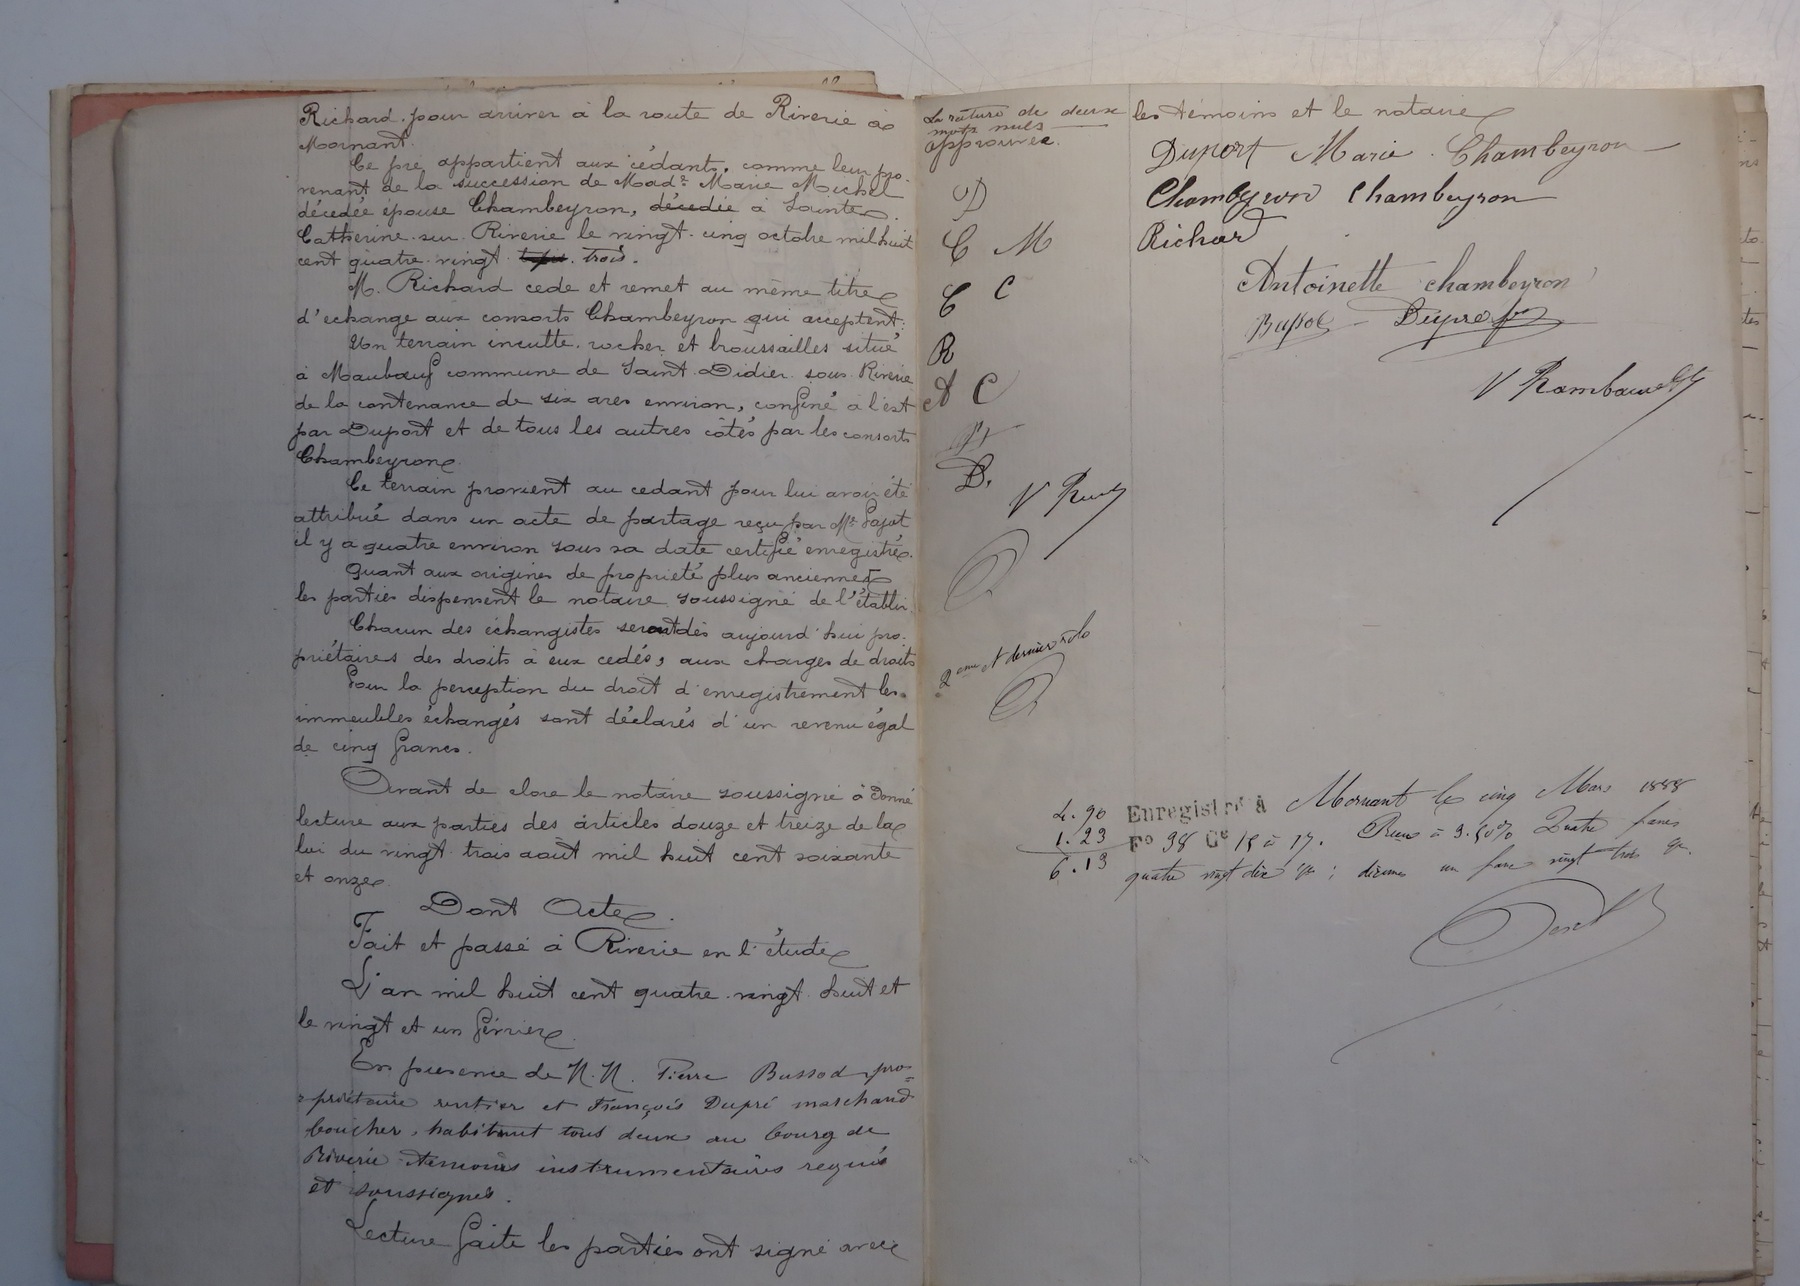 Richard pour arriver à la route de Riverie à
Mornant.
Ce pré appartient aux cédants, comme leur pro-
venant de la succession de Made Marie Michel
décédée épouse Chambeyron, décédée à Sainte
Catherine sur Riverie le vingt-cinq octobre mil huit
cent quatre-vingt trois.
M. Richard cede et remet au même titre
d'echange aux consorts Chambeyron qui acceptent:
Un terrain inculte, rocher et broussailles situé
à Maubœuf commune de Saint-Didier-sous-Riverie
de la contenance de six ares environ, confiné à l'est
par Duport et de tous les autres côtés par les consorts
Chambeyron.
Ce terrain provient au cedant pour lui avoir été
attribué dans un acte de partage reçu par Me
il y a quatre environ sous sa date certifié enregistré.
Quant aux origines de propriété plus anciennes
les parties dispensent le notaire soussigné de l'établir.
Chacun des échangistes seront dès aujourd'hui pro-
priétaires des droits à eux cedés, aux charges de droits
Pour la perception du droit d'enregistrement les
immeubles échangés sont déclarés d'un revenu égal
de cinq francs.
Avant de clore le notaire soussigné à donné
lecture aux parties des articles douze et treize de la
loi du vingt trois août mil huit cent soixante
et onze
Dont Acte.
Fait et passé à Riverie en l'étude
L'an mil huit cent quatre-vingt-huit et
le vingt et un février
En présence de M.M. Pierre Bussod pro-
priétaire rentier et François Dupré marchand
boucher, habitant tous deux au bourg de
Riverie témoins instrumentaires requis
et soussignés.
Lecture faite les parties ont signé avec
La rature de deux
mots nuls
approuvée.
D
C M
C C
R
A C
D.
V
2eme et dernier rôle
les témoins et le notaire
Duport Marie Chambeyron
Chambeyron Chambeyron
Richard
Antoinette Chambeyron
Bussod Dupré
V Rambaud
4.90
1.23
6.13
Enregistré à Mornant le cinq Mars 1888
Fo 38 Ce 15 à 17. Reçu à 3.50% Quatre francs
quatre vingt dix ces; décimes un franc vingt trois ces.